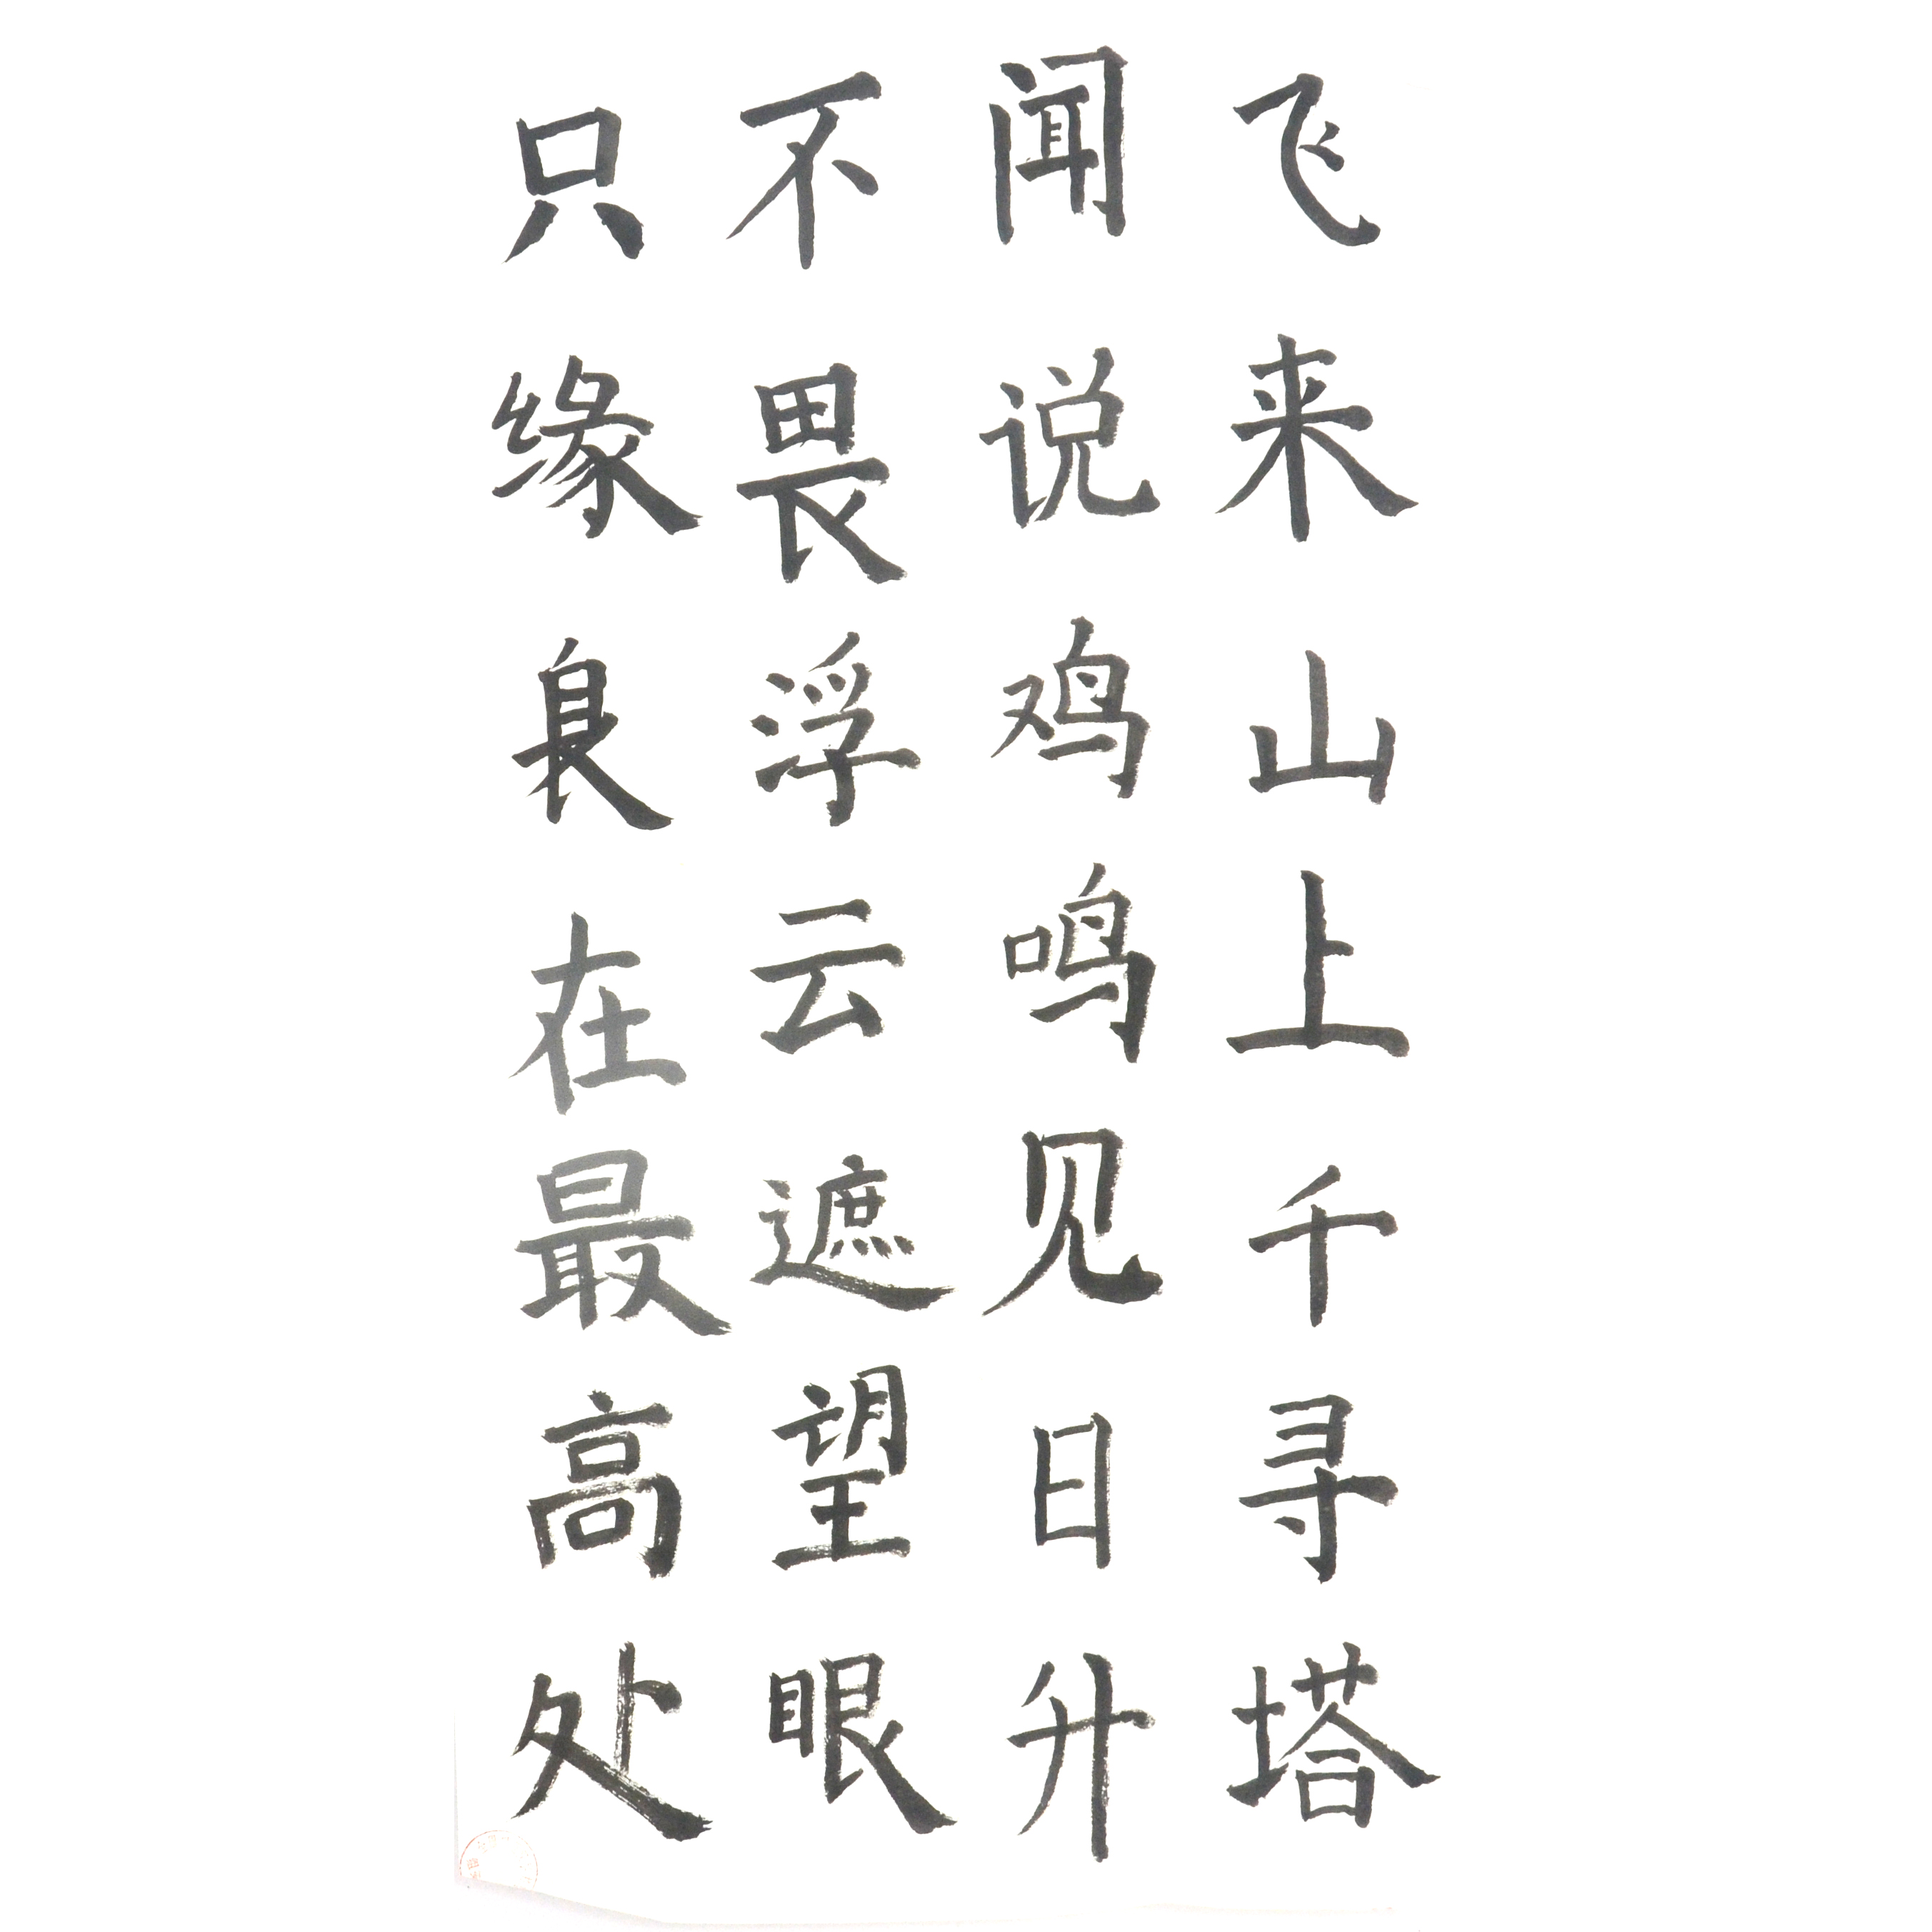 飞来山上千寻塔
闻说鸡鸣见日升
不畏浮云遮望眼
只缘身在最高处